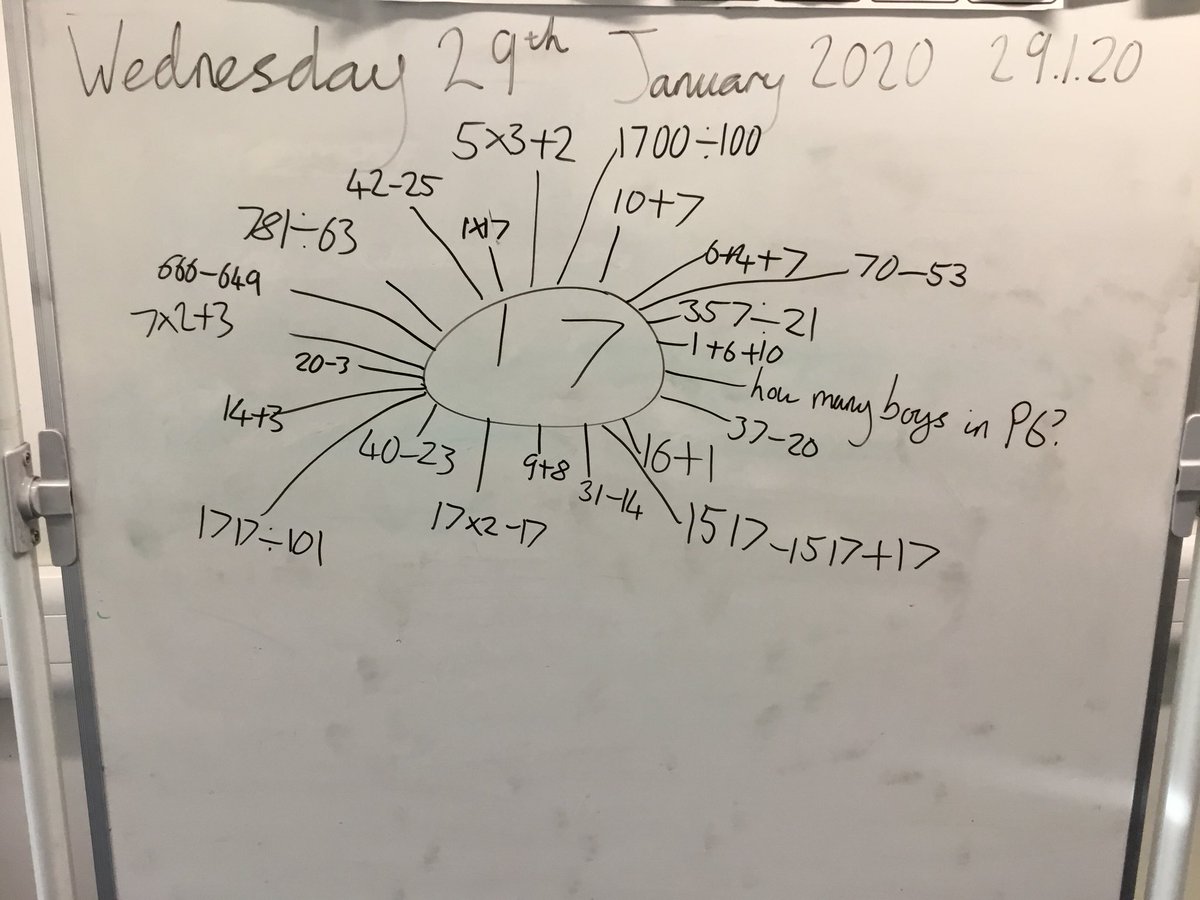 Wednesday 29th January 2020 29.1.20
5×3+2
1700÷100
42-25
1×17
10+7
781÷63
6+4+7
70-53
666-649
357÷21
7×2+3
17
1+6+10
20-3
how many boys in P6?
14+3
37-20
40-23
9+8
16+1
31-14
1717÷101
17×2-17
1517-1517+17